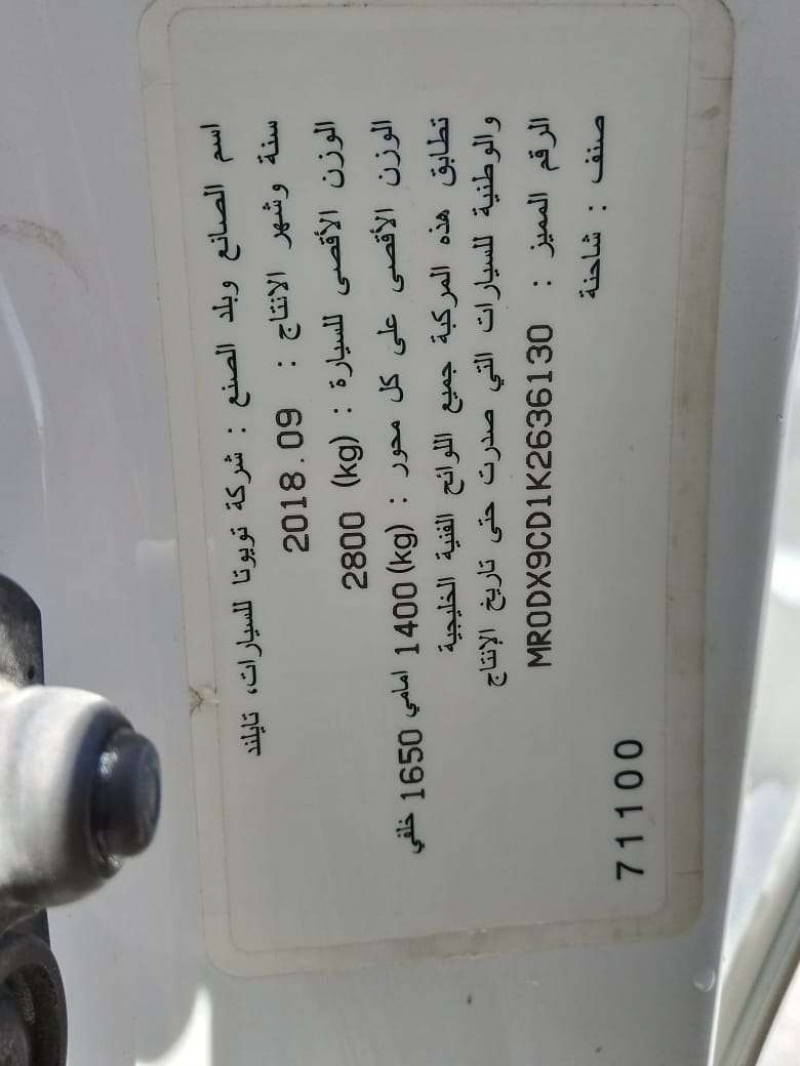 اسم الصانع وبلد الصنع : شركة تويوتا للسيارات، تايلند
سنة وشهر الانتاج : 2018.09
الوزن الأقصى للسيارة : (kg) 2800
الوزن الأقصى على كل محور : (kg) 1400 امامي 1650 خلفي
تطابق هذه المركبة جميع اللوائح الفنية الخليجية
والوطنية للسيارات التي صدرت حتى تاريخ الإنتاج
الرقم المميز : MR0DX9CD1K2636130
صنف : شاحنة
71100